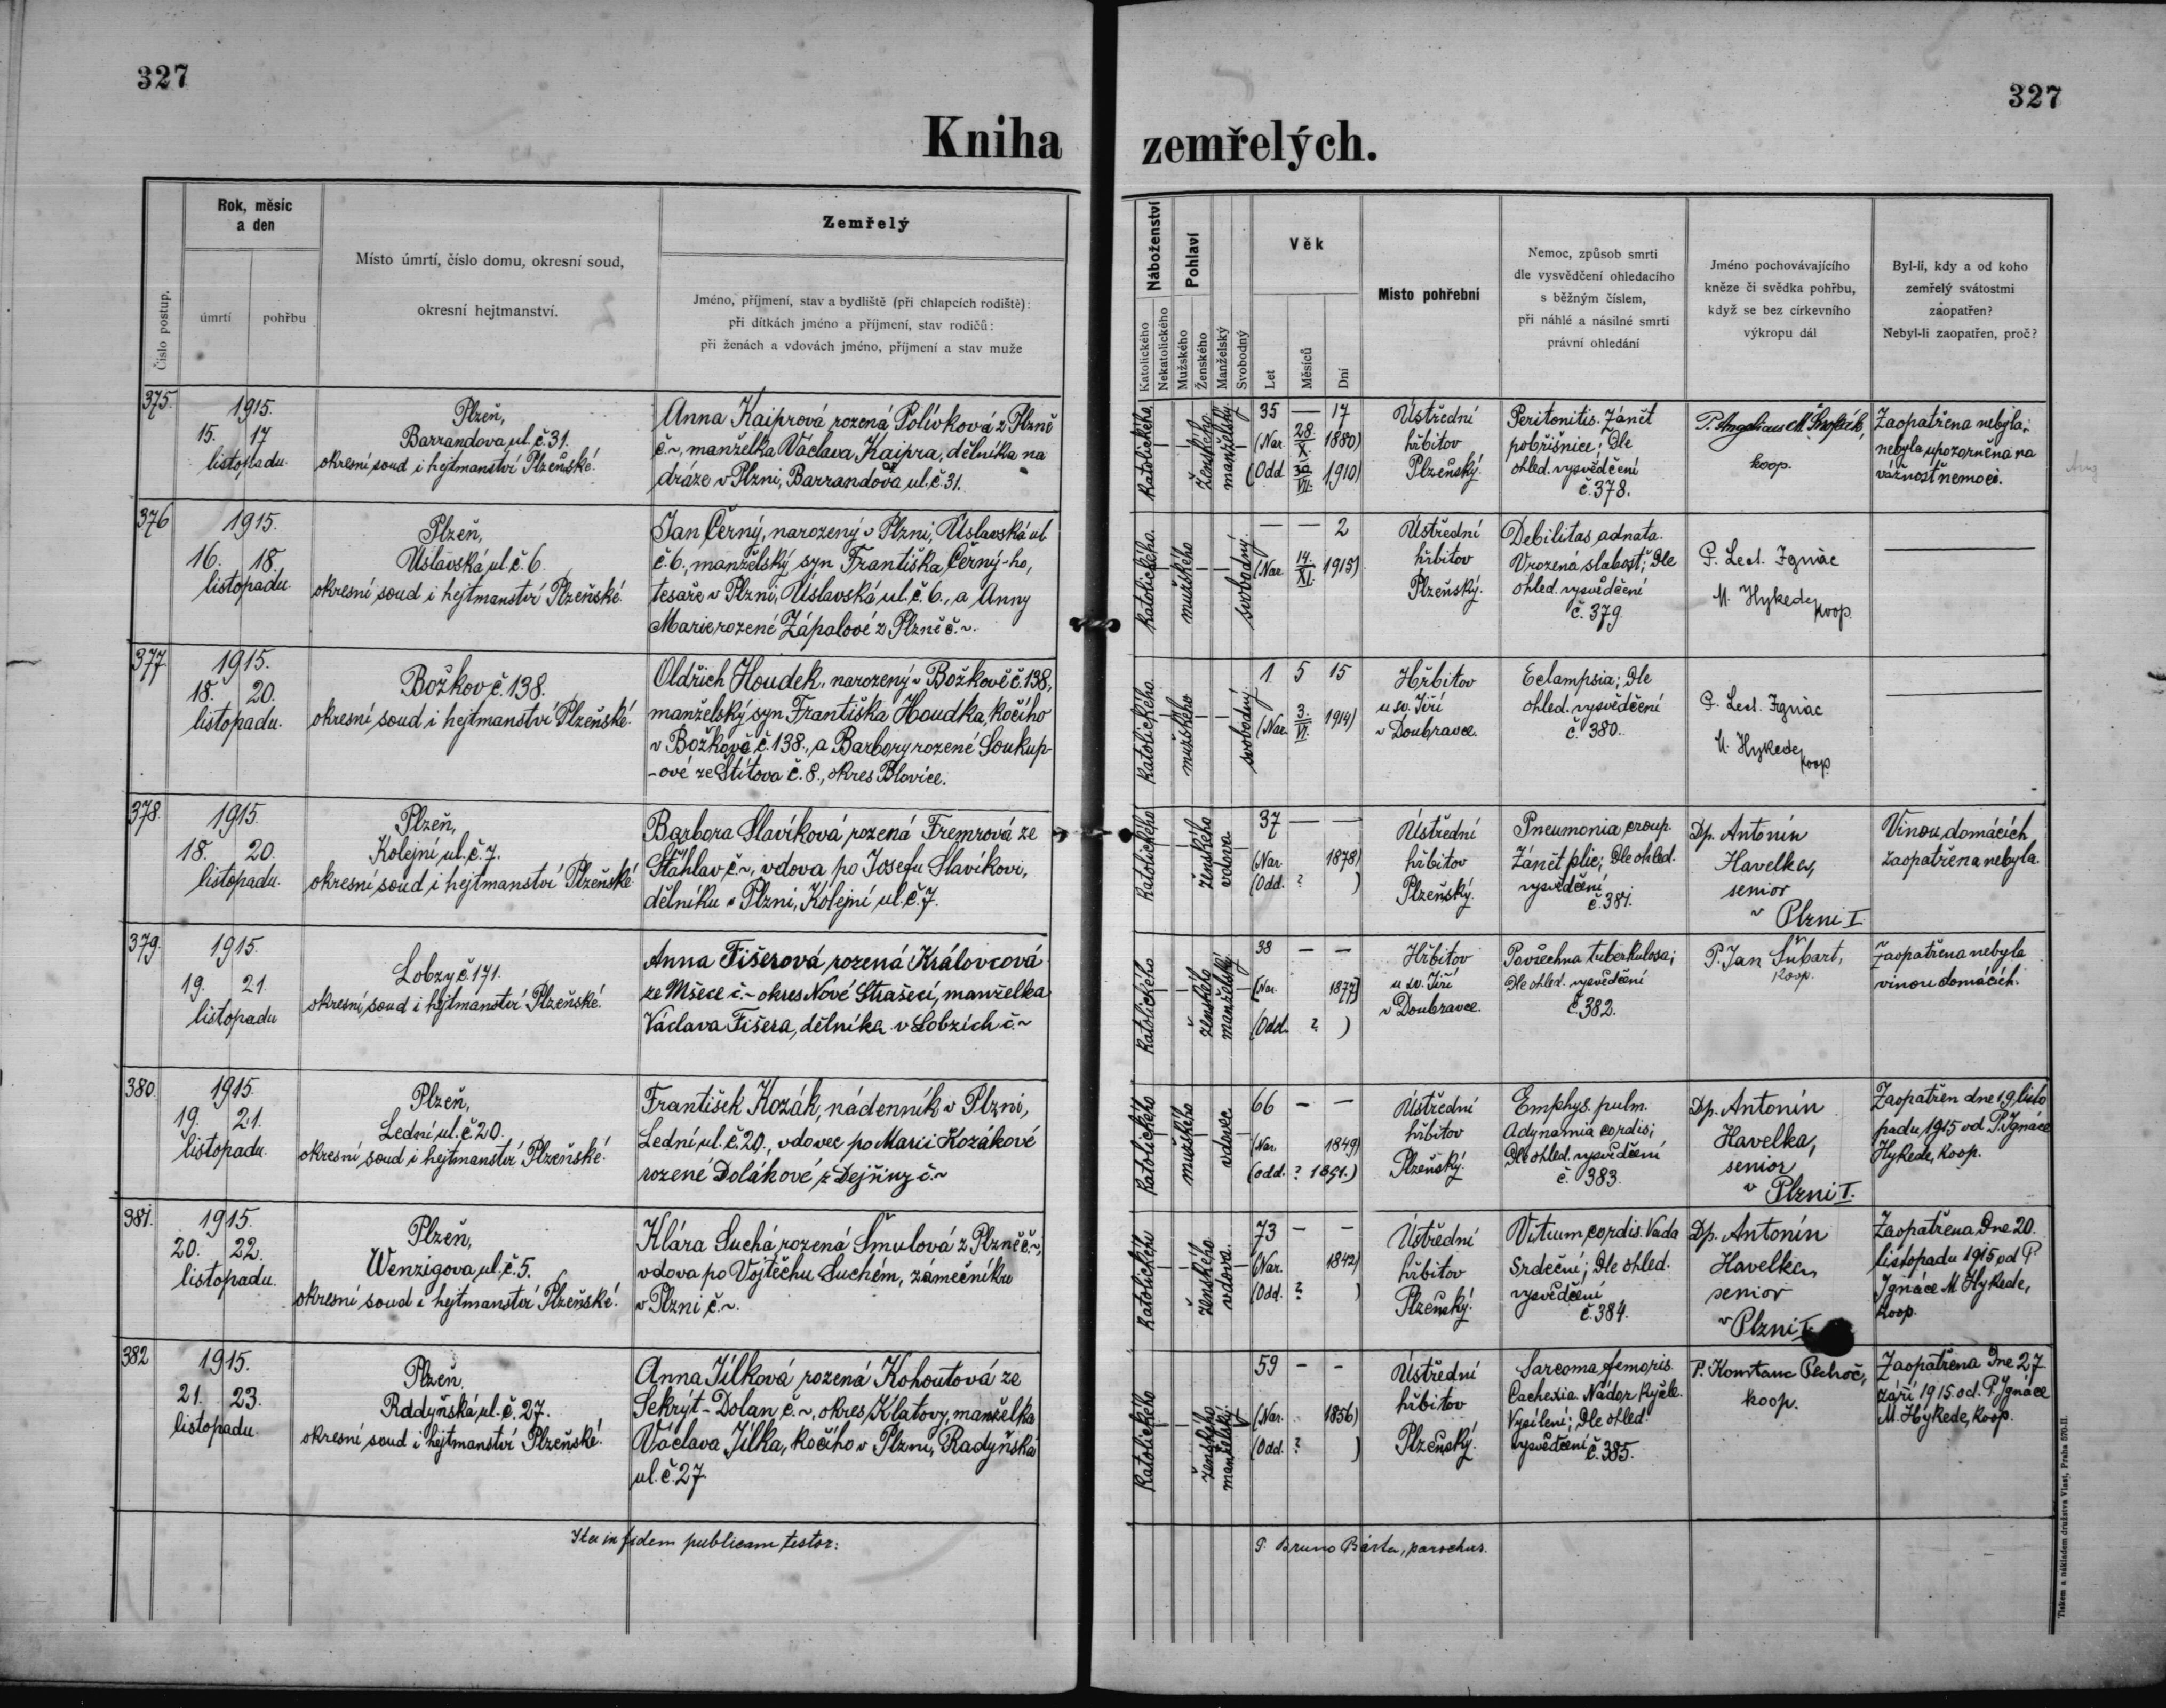 327
327
Kniha zemřelých.
Číslo postup.
Rok, měsíc
a den
úmrtí
pohřbu
Místo úmrtí, číslo domu, okresní soud,
okresní hejtmanství.
Zemřelý
Jméno, příjmení, stav a bydliště (při chlapcích rodiště):
při dítkách jméno a příjmení, stav rodičů:
při ženách a vdovách jméno, příjmení a stav muže
Náboženství
Katolického
Nekatolického
Pohlaví
Mužského
Ženského
Manželský
Svobodný
Věk
Let
Měsíců
Dní
Místo pohřební
Nemoc, způsob smrti
dle vysvědčení ohledacího
s běžným číslem,
při náhlé a násilné smrti
právní ohledání
Jméno pochovávajícího
kněze či svědka pohřbu,
když se bez církevního
výkropu dál
Byl-li, kdy a od koho
zemřelý svátostmi
zaopatřen?
Nebyl-li zaopatřen, proč?
375.
1915.
15. 17
listopadu.
Plzeň,
Barrandova ul. č. 31.
okresní soud i hejtmanství Plzeňské.
Anna Kaiprová rozená Polívková z Plzně
č. ~, manželka Václava Kaipra, dělníka na
dráze v Plzni, Barrandova ul. č. 31.
Katolického
ženského
manželský
35 — 17
(Nar. 28/X. 1880)
(Odd. 30/VII. 1910)
Ústřední
hřbitov
Plzeňský.
Peritonitis. Zánět
pobřišnice; Dle
ohled. vysvědčení
č. 378.
koop.
Zaopatřena nebyla;
nebyla upozorněna na
vážnost nemoci.
376
1915.
16. 18.
listopadu.
Plzeň,
Úslavská ul. č. 6.
okresní soud i hejtmanství Plzeňské.
Jan Černý, narozený v Plzni, Úslavská ul.
č. 6., manželský syn Františka Černý-ho,
tesaře v Plzni, Úslavská ul. č. 6., a Anny
Marie rozené Zápalové z Plzně č. ~.
Katolického.
mužského
svobodný.
— — 2
(Nar. 14./XI. 1915)
Ústřední
hřbitov
Plzeňský.
Debilitas adnata.
Vrozená slabost; Dle
ohled. vysvědčení
č. 379.
P. Lect. Ignác
M. Hykede,
koop.
377
1915.
18. 20.
listopadu.
Božkov č. 138.
okresní soud i hejtmanství Plzeňské.
Oldřich Houdek, narozený v Božkově č. 138,
manželský syn Františka Houdka, kočího
v Božkově č. 138., a Barbory rozené Soukup-
-ové ze Štítova č. 8., okres Blovice.
Katolického.
mužského
svobodný
1 5 15
(Nar. 3./VI. 1914)
Hřbitov
u sv. Jiří
v Doubravce.
Eclampsia; Dle
ohled. vysvědčení
č. 380.
P. Lect. Ignác
M. Hykede,
koop.
378.
1915.
18. 20.
listopadu.
Plzeň,
Kolejní ul. č. 7.
okresní soud i hejtmanství Plzeňské.
Barbora Slavíková rozená Fremrová ze
Šťáhlav č. ~, vdova po Josefu Slavíkovi,
dělníku v Plzni, Kolejní ul. č. 7.
Katolického
ženského
vdova.
37 — —
(Nar. 1878)
(Odd. ? )
Ústřední
hřbitov
Plzeňský.
Pneumonia croup.
Zánět plic; Dle ohled.
vysvědčení
č. 381.
Dp. Antonín
Havelka,
senior
v Plzni I.
Vinou domácích
zaopatřena nebyla.
379.
1915.
19. 21.
listopadu
Lobzy č. 171.
okresní soud i hejtmanství Plzeňské.
Anna Fišerová, rozená Královcová
ze Mšece č. ~ okres Nové Strašecí, manželka
Václava Fišera, dělníka v Lobzích č. ~
Katolického
ženského
manželský.
38 — —
(Nar. 1877)
(Odd. ? )
Hřbitov
u sv. Jiří
v Doubravce.
Povšechna tuberkulosa;
Dle ohled. vysvědčení
č. 382.
P. Jan Šubart,
koop.
Zaopatřena nebyla
vinou domácích.
380.
1915.
19. 21.
listopadu.
Plzeň,
Lední ul. č. 20.
okresní soud i hejtmanství Plzeňské.
František Kozák, nádenník v Plzni,
Lední ul. č. 20., vdovec po Marii Kozákové
rozené Dolákové z Dejšiny č. ~
Katolického
mužského
vdovec
66 — —
(Nar. 1849)
(Odd. ?
Ústřední
hřbitov
Plzeňský.
Emphys. pulm.
Adynamia cordis;
Dle ohled. vysvědčení
č. 383.
Dp. Antonín
Havelka,
senior
v Plzni I.
Zaopatřen dne 19. listo
padu 1915 od P. Ignáce
Hykede, koop.
381.
1915.
20. 22.
listopadu.
Plzeň,
Wenzigova ul. č. 5.
okresní soud i hejtmanství Plzeňské.
Klára Suchá, rozená Šmulová z Plzně č. ~,
vdova po Vojtěchu Suchém, zámečníku
v Plzni č. ~.
Katolického
ženského
vdova.
73 — —
(Nar. 1842)
(Odd. ? )
Ústřední
hřbitov
Plzeňský.
Vitium cordis. Vada
srdeční; Dle ohled.
vysvědčení
č. 384.
Dp. Antonín
Havelka,
senior
v Plzni I.
Zaopatřena dne 20.
listopadu 1915 od P.
Ignáce M. Hykede,
koop.
382
1915.
21. 23.
listopadu.
Plzeň.
Radyňská ul. č. 27.
okresní soud i hejtmanství Plzeňské.
Anna Jílková rozená Kohoutová ze
Sekrýt-Dolan č. ~, okres Klatovy, manželka
Václava Jílka, kočího v Plzni, Radyňská
ul. č. 27.
Katolického
ženského
manželský.
59 — —
(Nar. 1856)
(Odd. ? )
Ústřední
hřbitov
Plzeňský.
Sarcoma femoris
Cachexia. Nádor kyčle.
Vysílení; Dle ohled.
vysvědčení č. 385.
P. Konstanc Pechoč,
koop.
Zaopatřena dne 27.
září 1915. od P. Ignáce
M. Hykede, koop.
Ita in fidem publicam testor:
P. Bruno Bárta, parochus.
Tiskem a nákladem družstva Vlast, Praha 570-II.